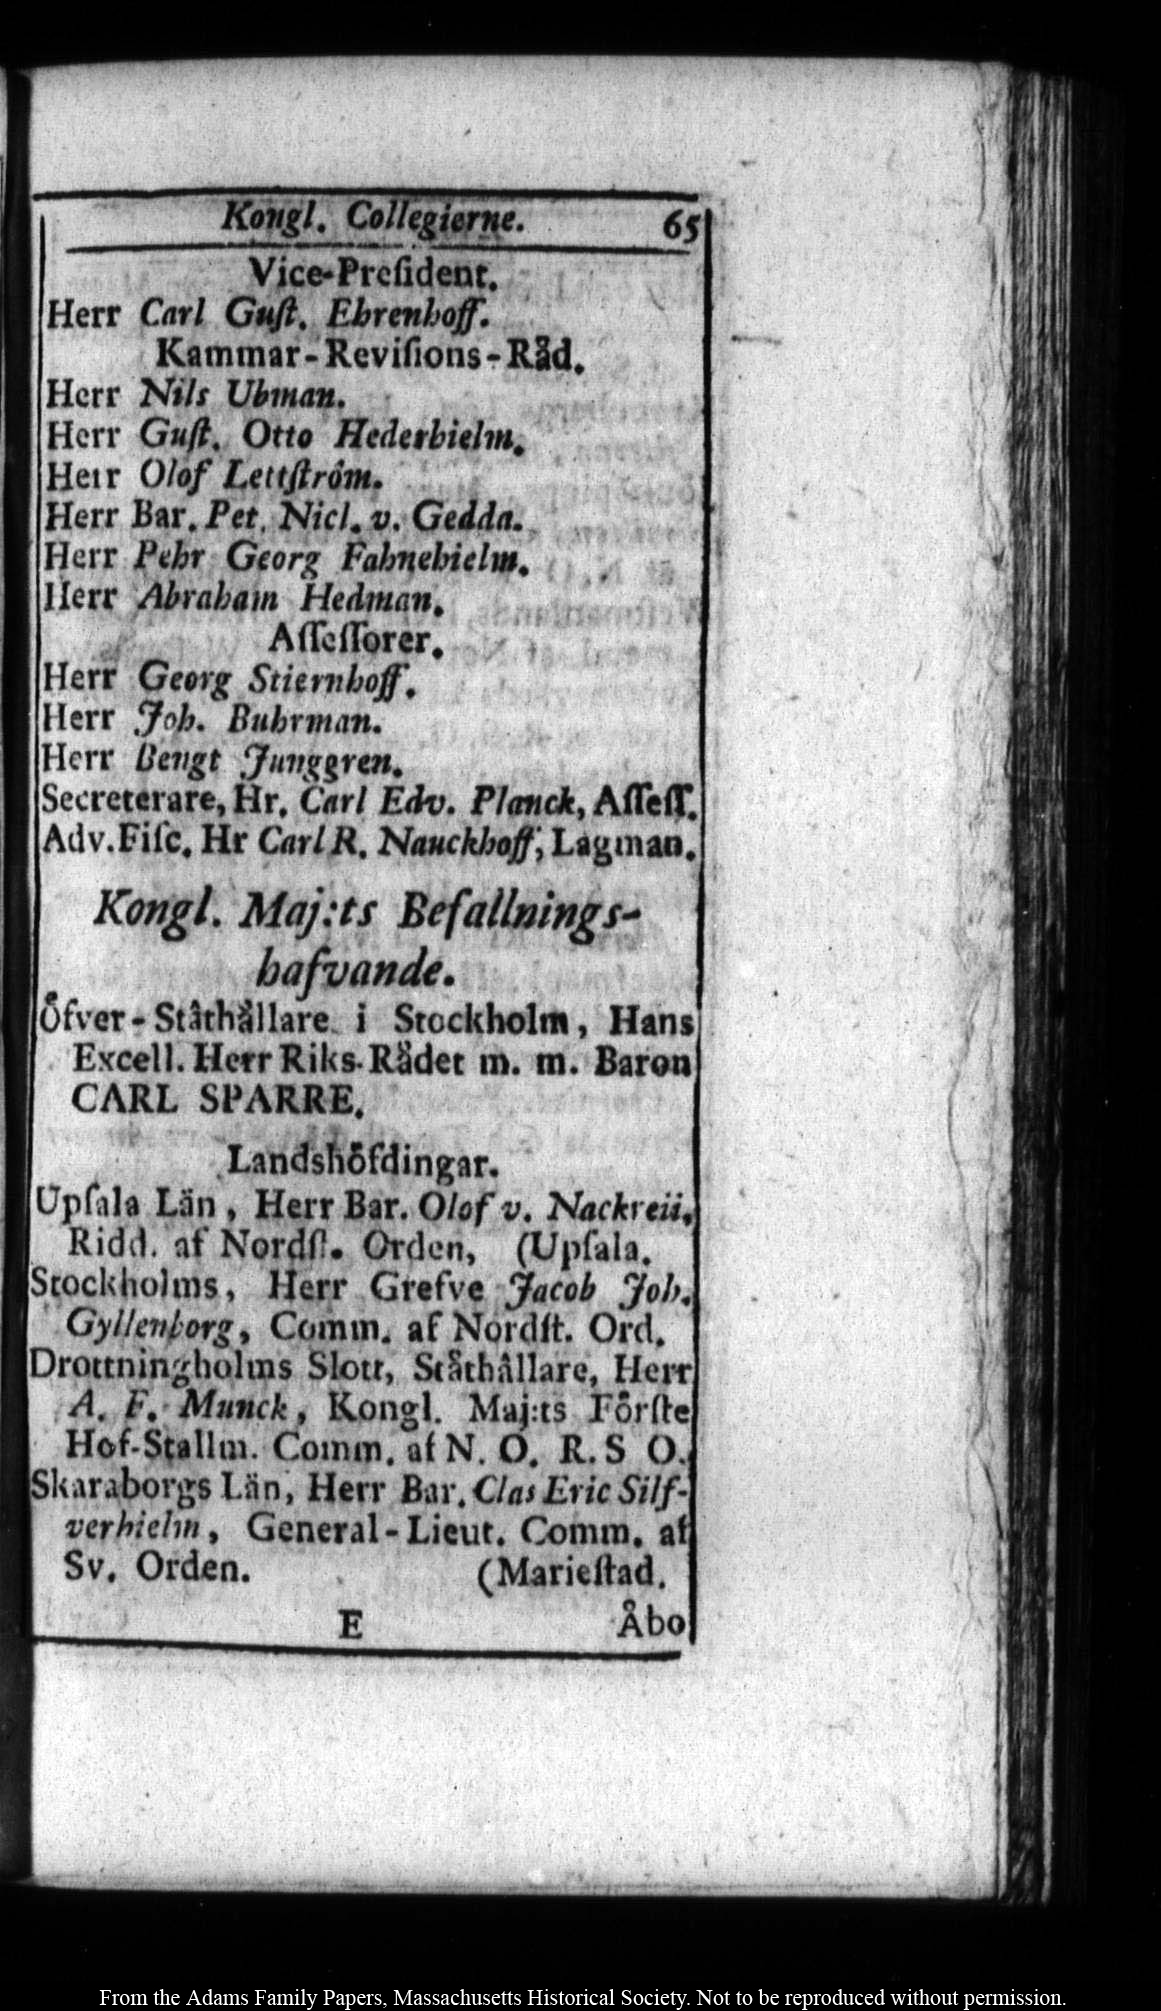 Kongl. Collegierne. 65
Vice-Preſident.
Herr Carl Guſt. Ehrenhoff.
Kammar-Reviſions-Råd.
Herr Nils Uhman.
Herr Guſt. Otto Hederhielm.
Herr Olof Lettſtrôm.
Herr Bar. Pet. Nicl. v. Gedda.
Herr Pehr Georg Fahnehielm.
Herr Abraham Hedman.
Aſſeſſorer.
Herr Georg Stiernhoff.
Herr Joh. Buhrman.
Herr Bengt Junggren.
Secreterare, Hr. Carl Edv. Planck, Aſſeſſ.
Adv. Fiſc. Hr Carl R. Nauckhoff, Lagman.
Kongl. Maj:ts Befallnings-
hafvande.
Öfver-Ståthållare i Stockholm, Hans
Excell. Herr Riks-Rådet m. m. Baron
CARL SPARRE.
Landshöfdingar.
Upſala Län, Herr Bar. Olof v. Nackreii,
Ridd. af Nordſt. Orden, (Upſala.
Stockholms, Herr Grefve Jacob Joh.
Gyllenborg, Comm. af Nordſt. Ord.
Drottningholms Slott, Ståthållare, Herr
A. F. Munck, Kongl. Maj:ts Förſte
Hof-Stallm. Comm. af N. O. R. S O.
Skaraborgs Län, Herr Bar. Clas Eric Silf-
verhielm, General-Lieut. Comm. af
Sv. Orden. (Marieſtad.
E Åbo
From the Adams Family Papers, Massachusetts Historical Society. Not to be reproduced without permission.